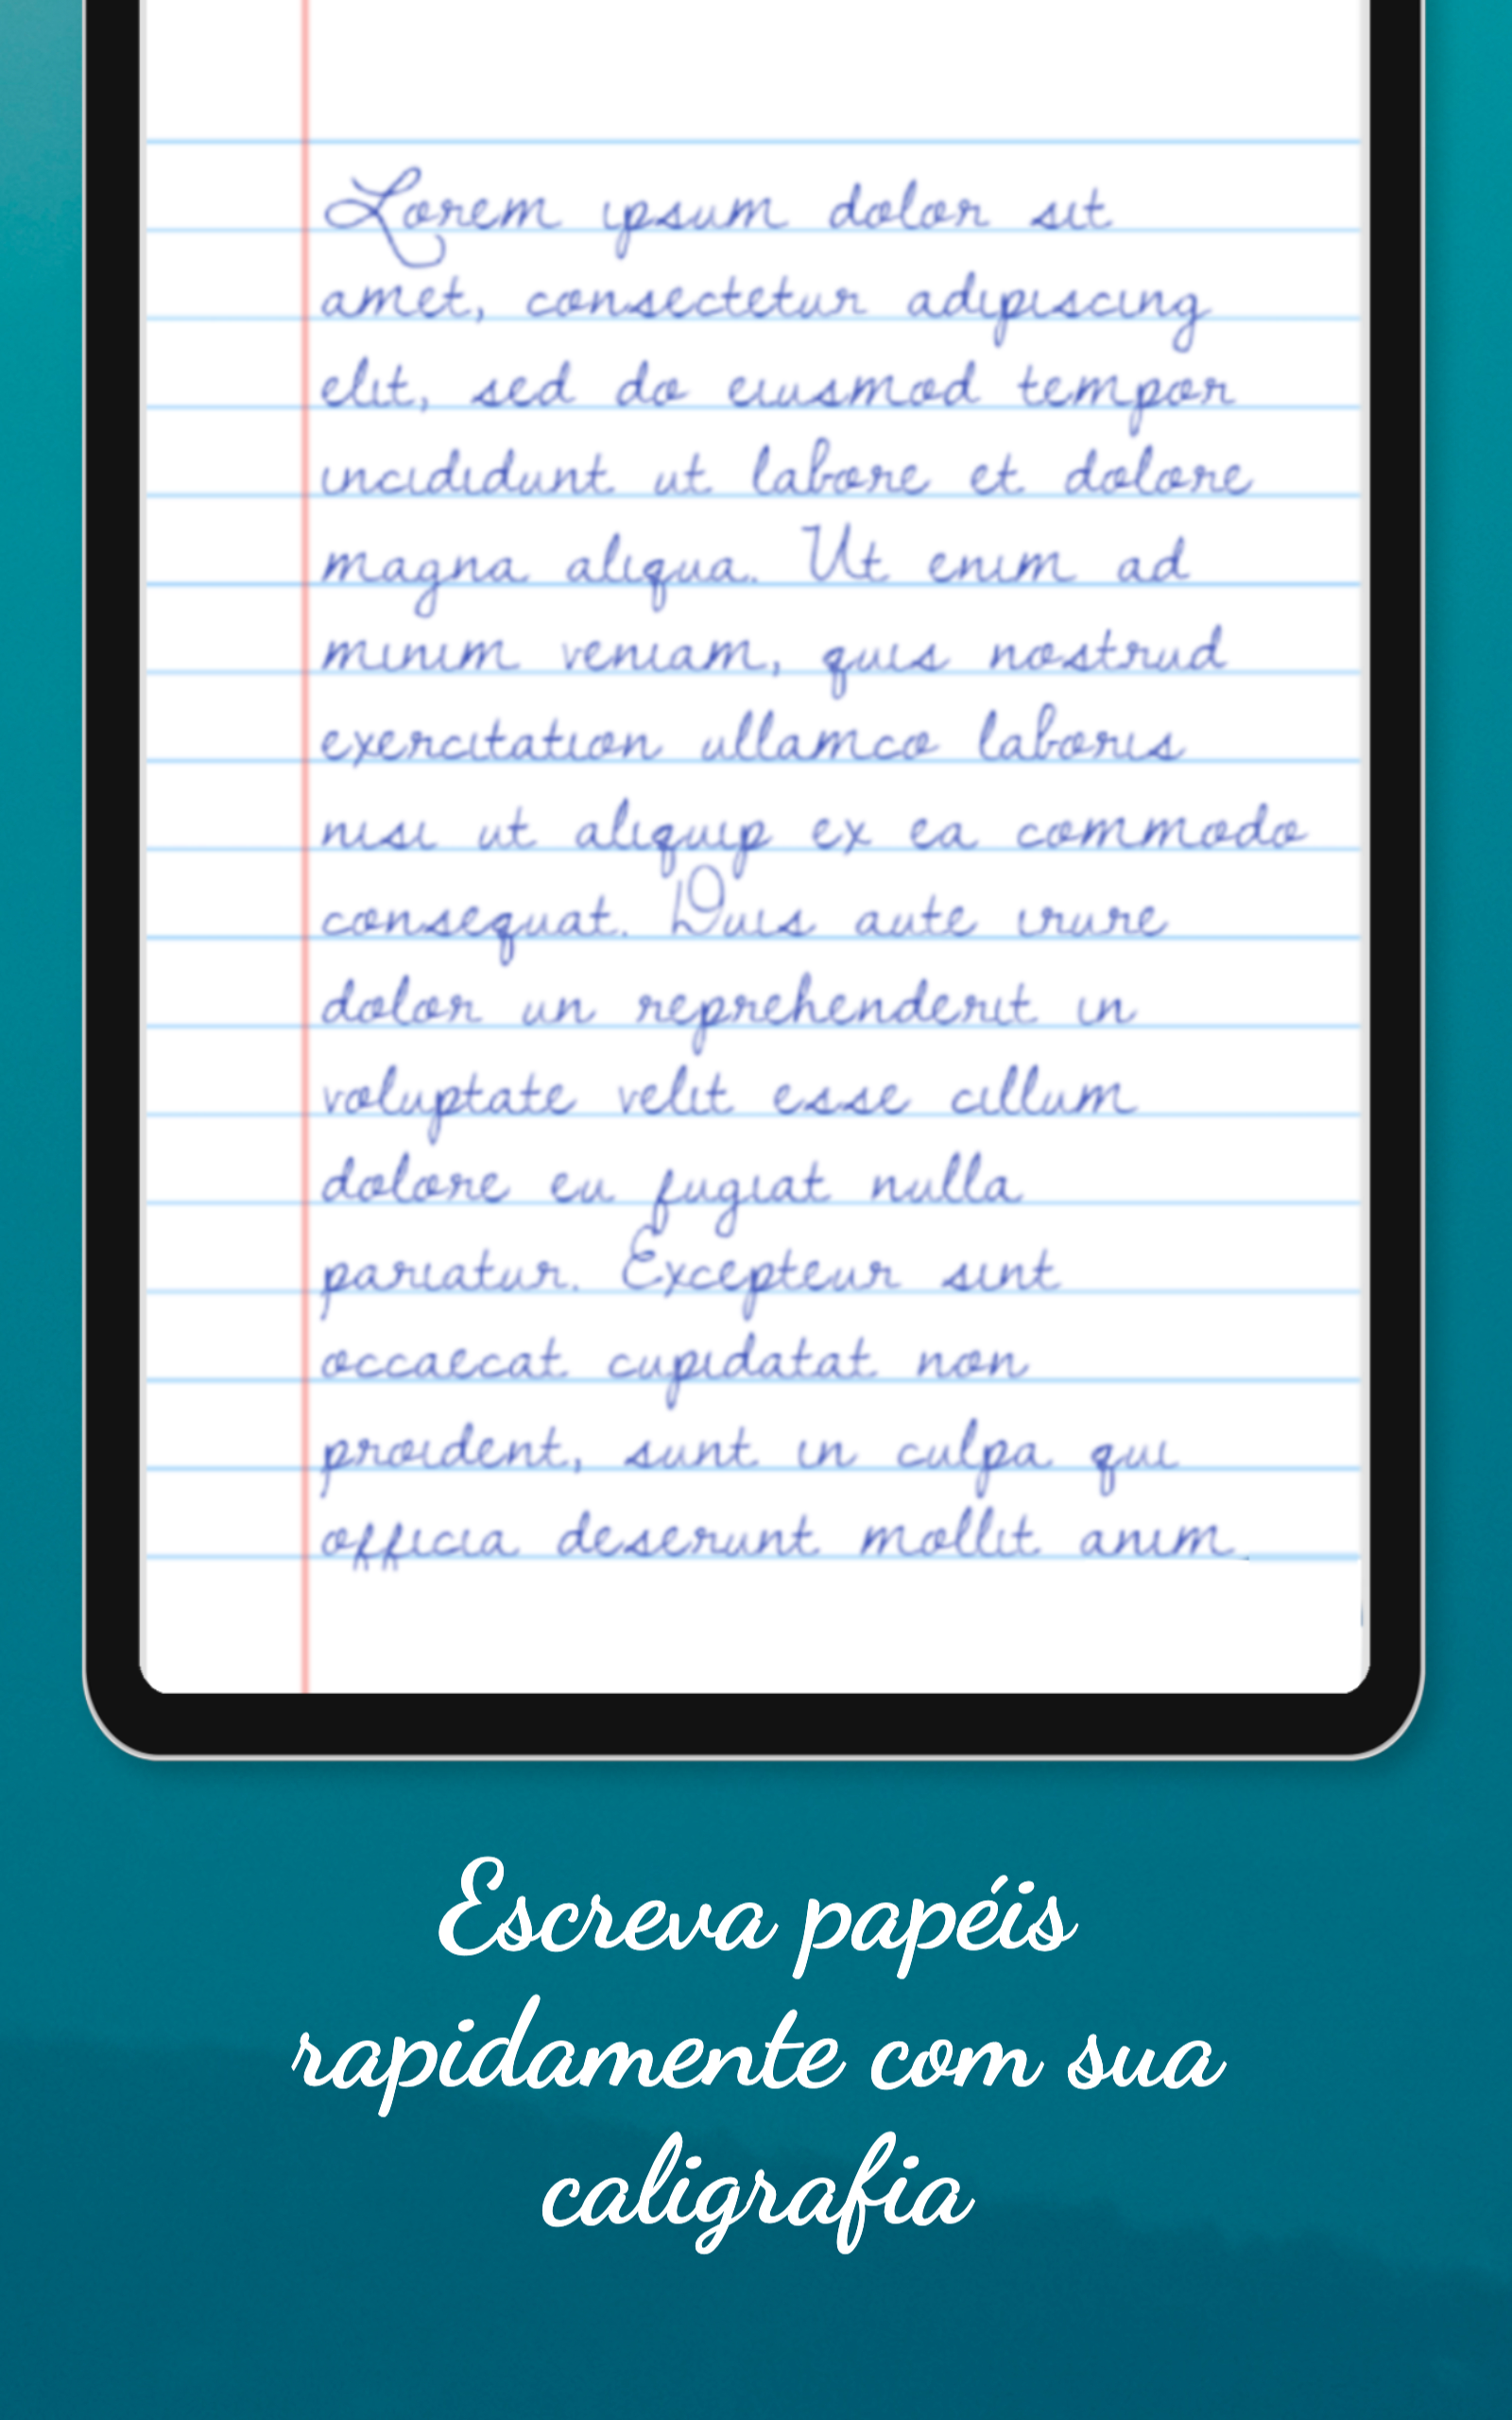 Lorem ipsum dolor sit
amet, consectetur adipiscing
elit, sed do eiusmod tempor
incididunt ut labore et dolore
magna aliqua. Ut enim ad
minim veniam, quis nostrud
exercitation ullamco laboris
nisi ut aliquip ex ea commodo
consequat. Duis aute irure
dolor un reprehenderit in
voluptate velit esse cillum
dolore eu fugiat nulla
pariatur. Excepteur sint
occaecat cupidatat non
proident, sunt in culpa qui
officia deserunt mollit anim.
Escreva papéis
rapidamente com sua
caligrafia